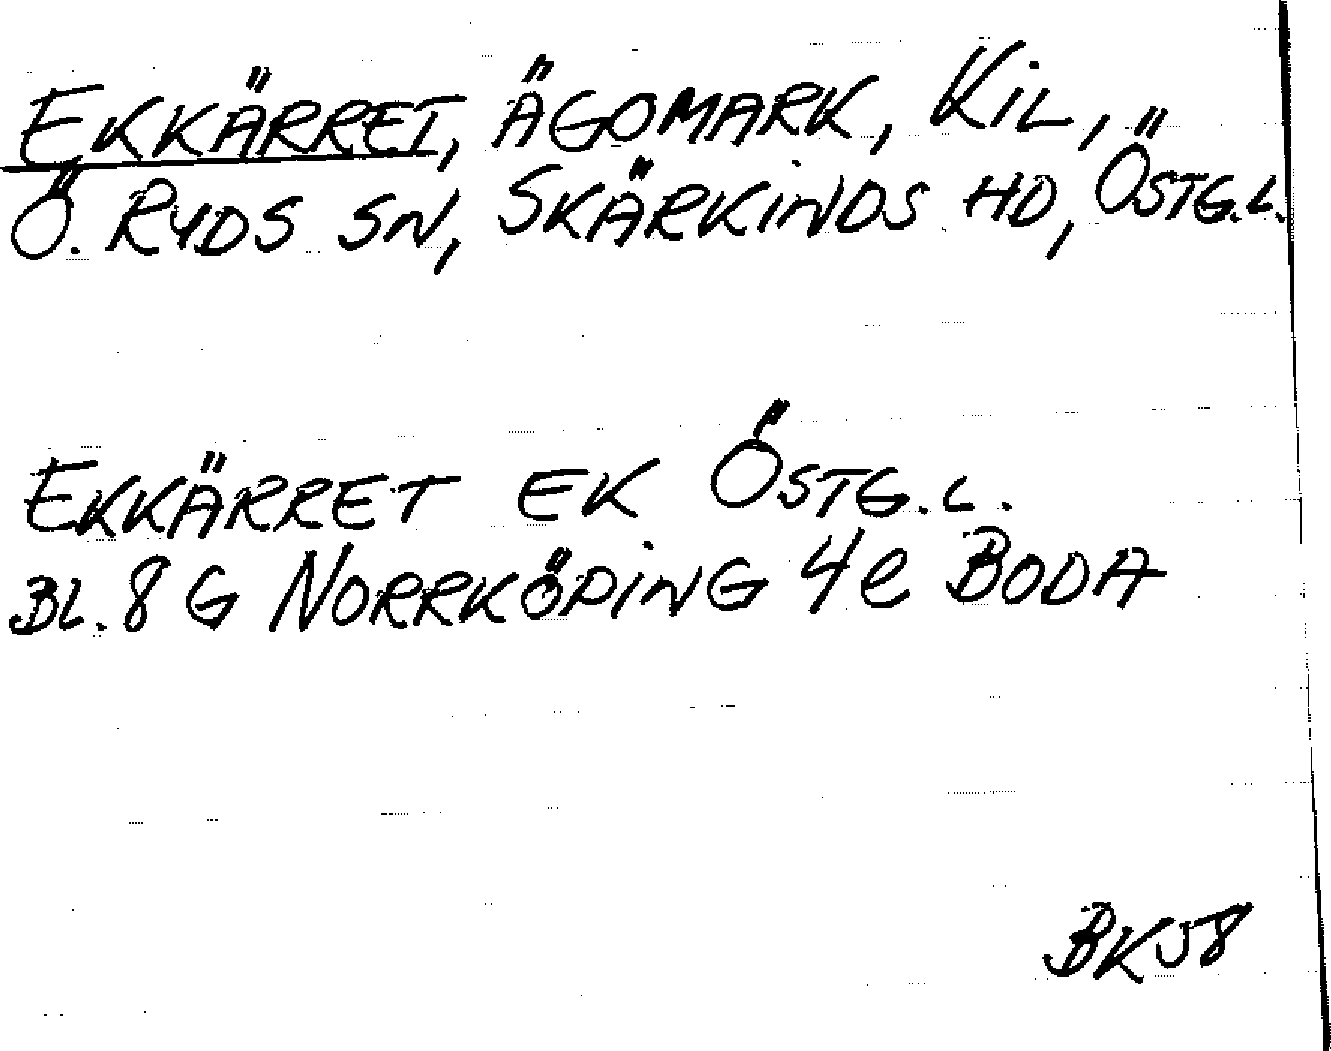 EKKÄRRET, ÄGOMARK, KIL,
Ö. RYDS SN, SKÄRKINDS HD, ÖSTG.L.
EKKÄRRET EK ÖSTG.L.
BL. 8 G NORRKÖPING 4e BODA
BK58